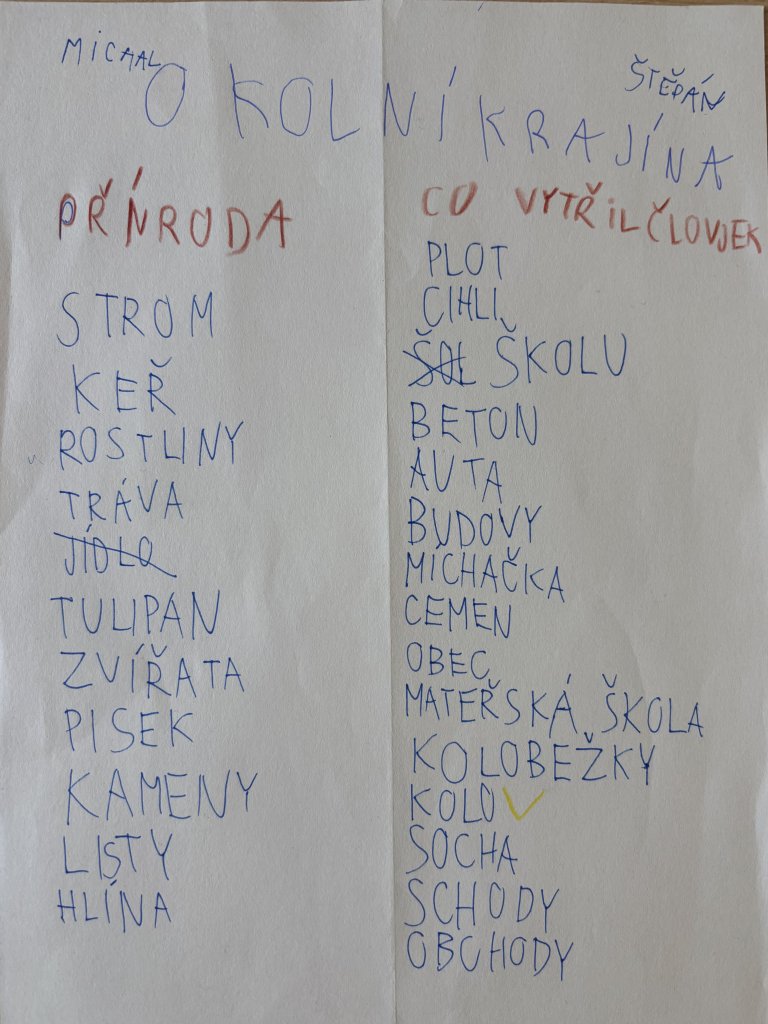 MICAAL
ŠTĚPÁN
OKOLNÍ KRAJÍNA
PŘÍNRODA
STROM
KEŘ
ROSTLINY
TRÁVA
JÍDLO
TULIPAN
ZVÍŘATA
PISEK
KAMENY
LISTY
HLÍNA
CO VYTŘIL ČLOVJEK
PLOT
CIHLI
ŠOL ŠKOLU
BETON
AUTA
BUDOVY
MÍCHAČKA
CEMEN
OBEC
MATEŘSKÁ ŠKOLA
KOLOBEŽKY
KOLO
SOCHA
SCHODY
OBCHODY